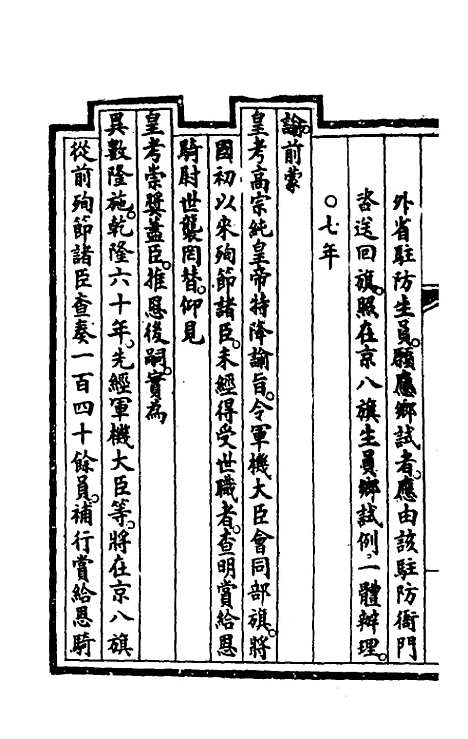 外省駐防生員。願應鄉試者。應由該駐防衙門
咨送回旗。照在京八旗生員鄉試例。一體辦理。
○七年
諭。前蒙
皇考高宗純皇帝特降諭旨。令軍機大臣會同部旗。將
國初以來殉節諸臣。未經得受世職者。查明賞給恩
騎尉世襲罔替。仰見
皇考崇奬藎臣。推恩後嗣。實為
異數隆施。乾隆六十年。先經軍機大臣等。將在京八旗
從前殉節諸臣查奏一百四十餘員。補行賞給恩騎